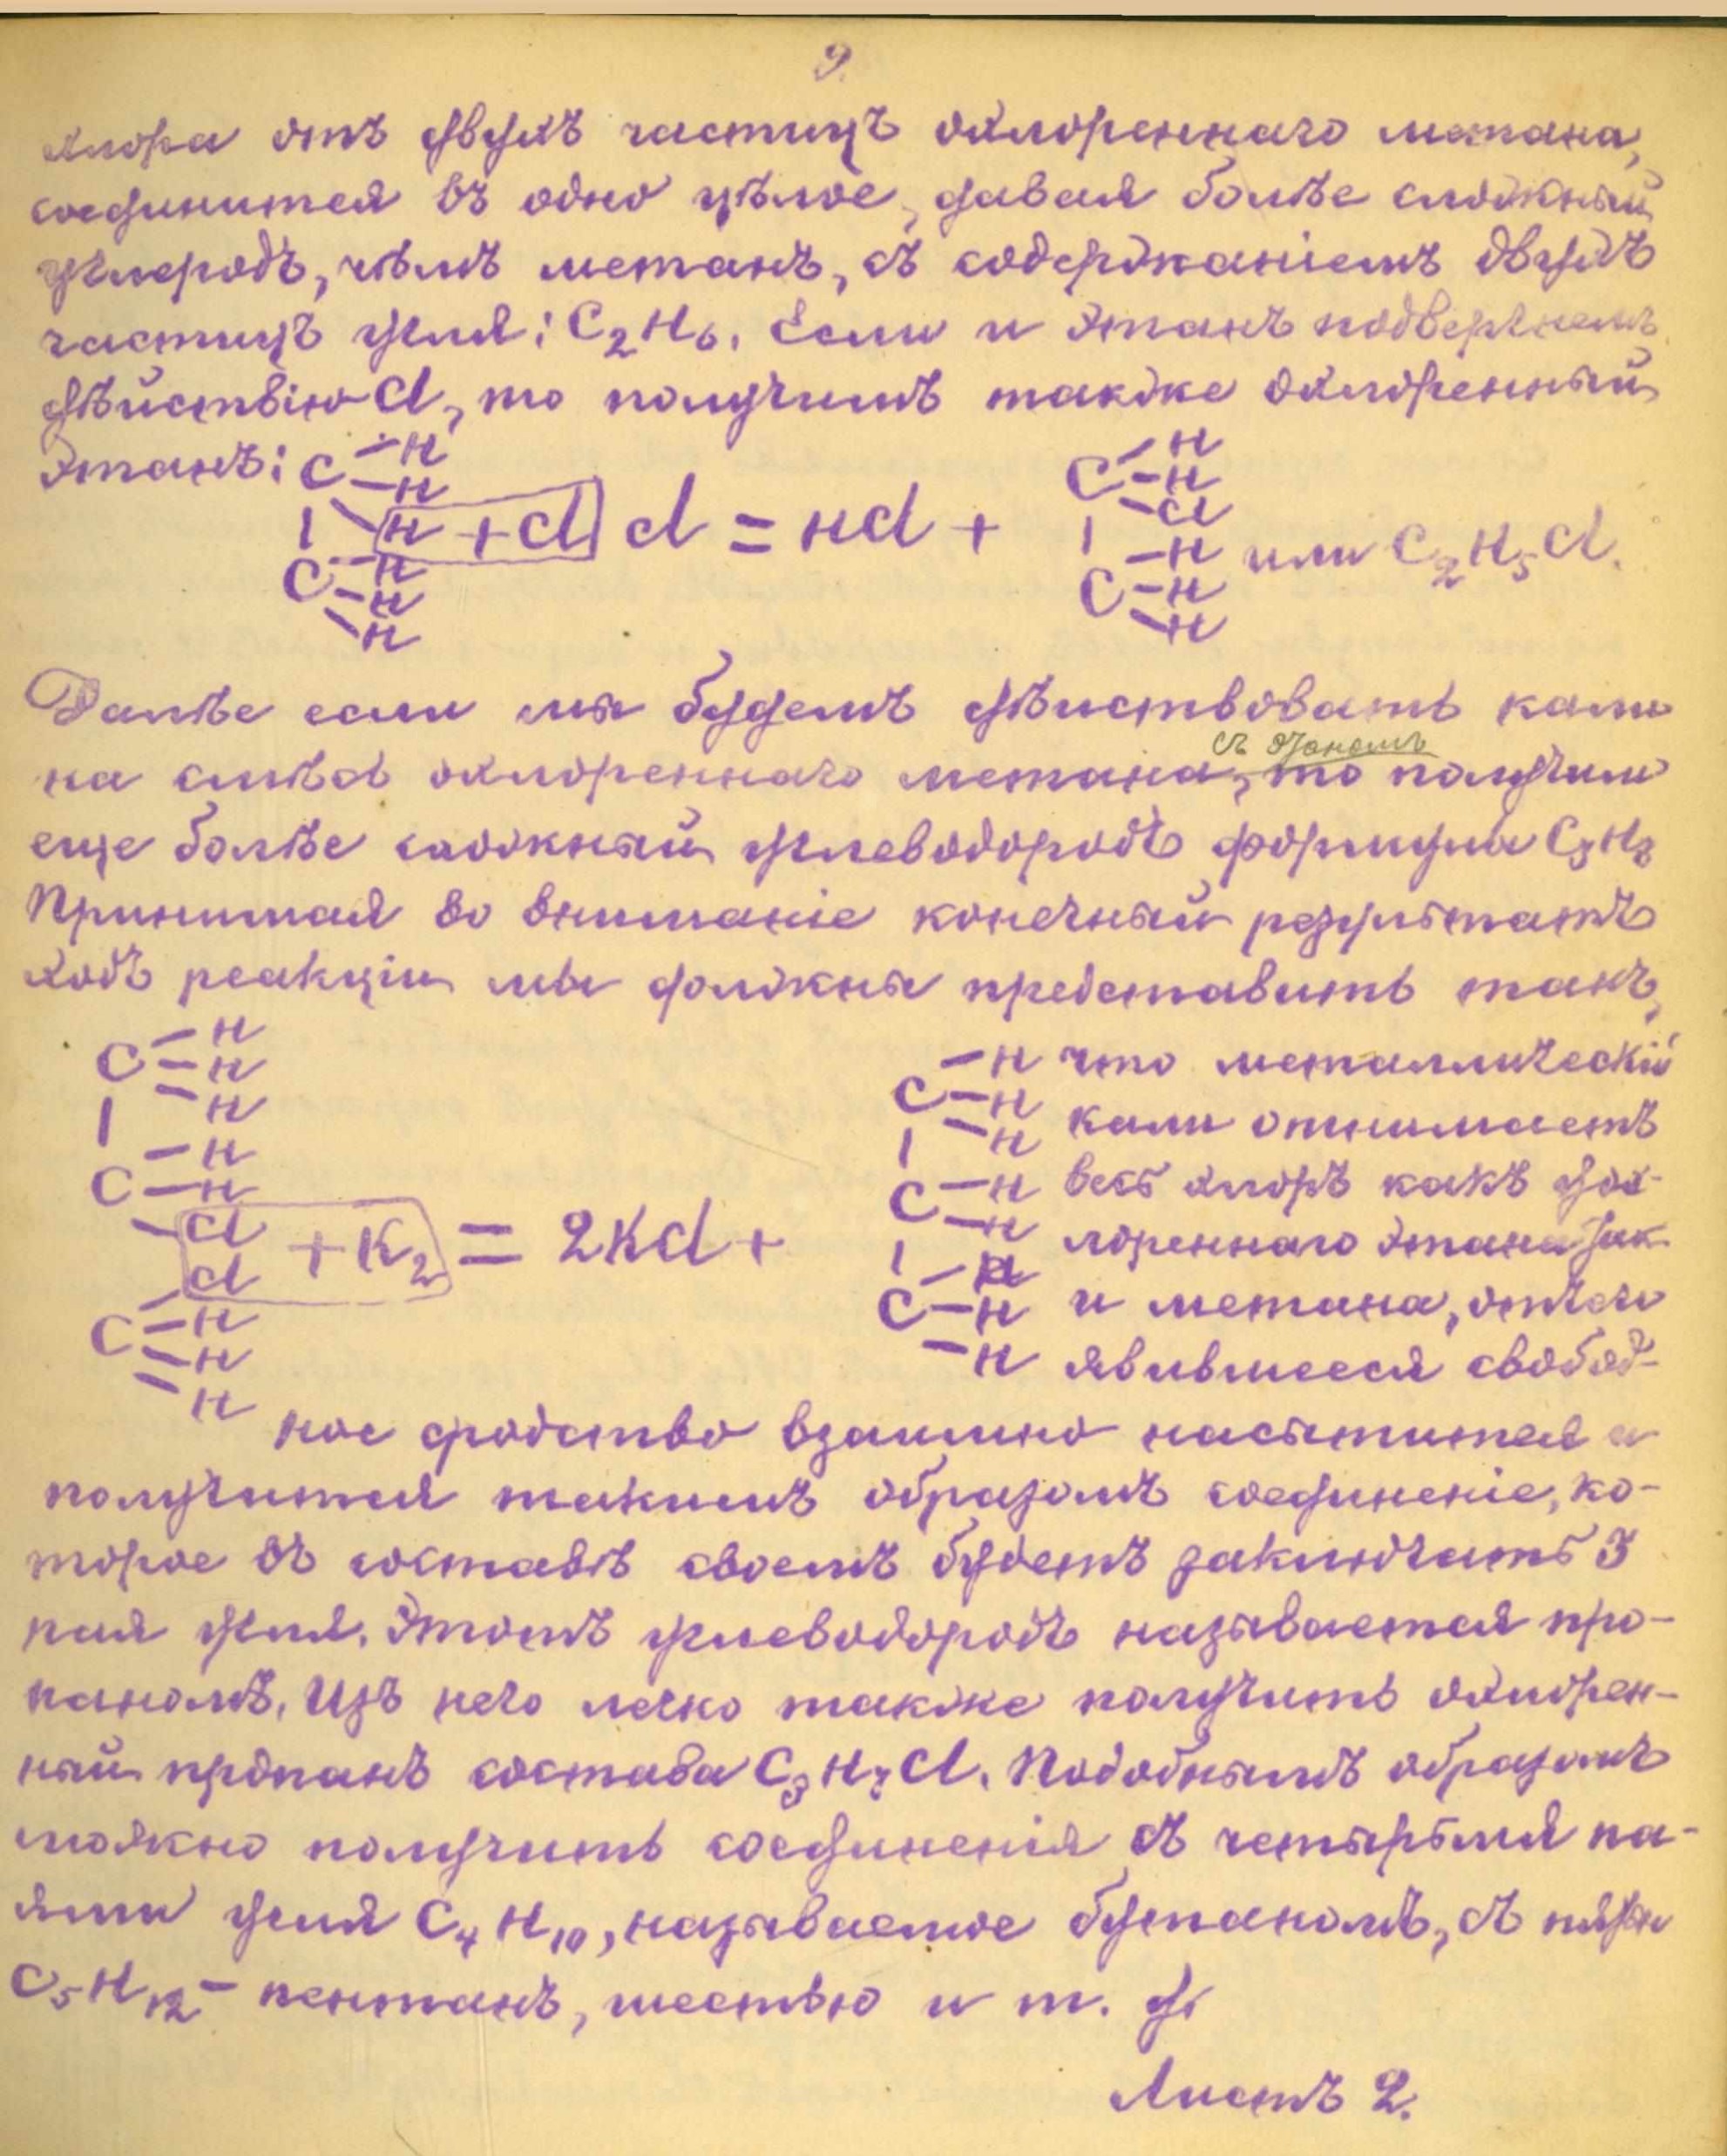 9.
хлора отъ двухъ частицъ охлореннаго метана,
соединится въ одно цѣлое, давая болѣе сложный
углеродъ, чѣмъ метанъ, съ содержаніемъ двухъ
частицъ угля: C₂H₆. Если и этанъ подвергнемъ
дѣйствію Cl, то получимъ также охлоренный
этанъ: C H H
H + Cl Cl = HCl +
C H H H
C H H Cl
C H H H
или C₂H₅Cl.
Далѣе если мы будемъ дѣйствовать кали
съ этаномъ
на смѣсь охлореннаго метана, то получим
еще болѣе сложный углеводородъ формулы C₃H₈
Принимая во вниманіе конечный результатъ
ходъ реакціи мы должны представить такъ,
C H H H
C H H
Cl
Cl + K₂ = 2KCl +
C H H H
C H H H
C H H
C H H H
что металлическій
кали отнимаетъ
весь хлоръ какъ
лореннаго этана так
и метана, отчего
явившееся свобод-
ное сродство взаимно насытится и
получится такимъ образомъ соединеніе, ко-
торое въ составѣ своемъ будетъ заключать 3
пая угля. Этотъ углеводородъ называется про-
паномъ. Изъ него легко также получить охлорен-
ный пропанъ состава C₃H₇Cl. Подобнымъ образомъ
можно получить соединенія съ четырьмя па-
ями угля C₄H₁₀, называемое бутаномъ, съ пятью
C₅H₁₂ - пентанъ, шестью и т. д.
Листъ 2.